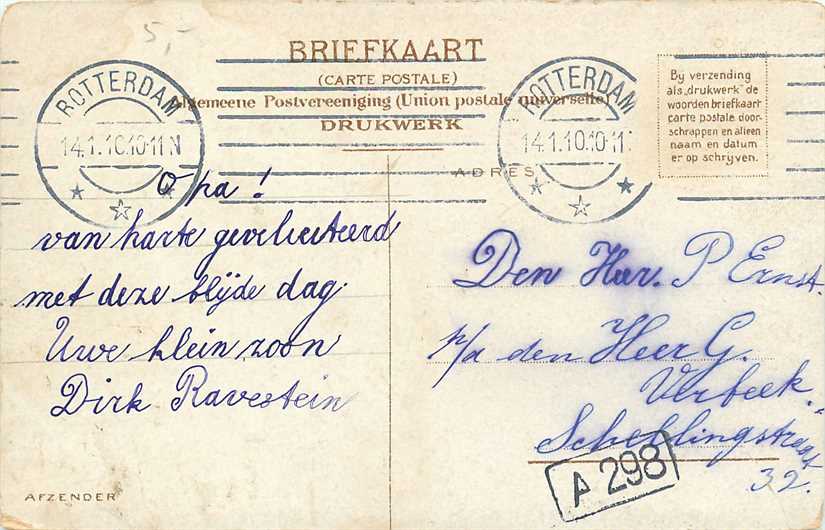 5,-
BRIEFKAART
(CARTE POSTALE)
Algemeene Postvereeniging (Union postale universelle)
DRUKWERK
ROTTERDAM
14.1.10.10-11 N
ROTTERDAM
14.1.10.10-11
By verzending
als "drukwerk" de
woorden briefkaart
carte postale door-
schrappen en alleen
naam en datum
er op schryven.
ADRES
Opa!
van harte gevelieteerd
met deze blijde dag.
Uwe klein zoon
Dirk Ravestein
AFZENDER
Den Heer. P Ernst.
p/a den Heer G.
Verbeek.
Schellingstraat
32.
A 298